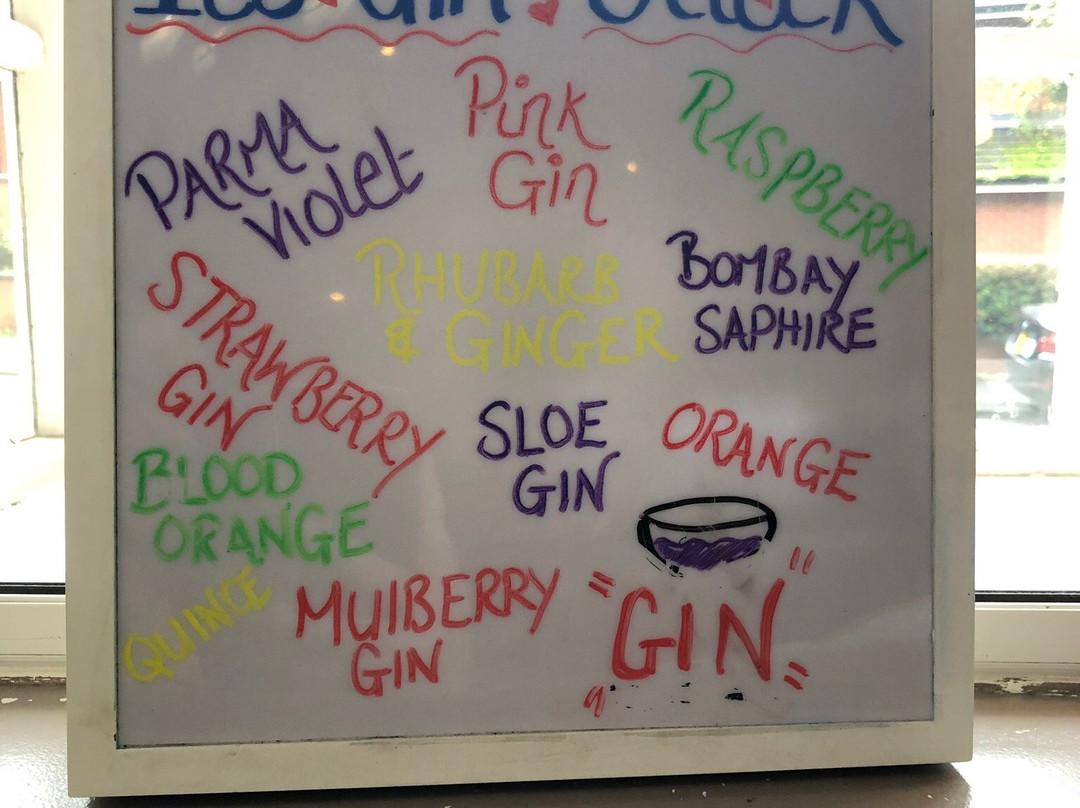 Gin O'Clock
PARMA
VIOLet
Pink
Gin
RASPBERRY
RHUBARB
& GINGER
BOMBAY
SAPHIRE
STRAWBERRY
GIN
SLOE
GIN
ORANGE
BLOOD
ORANGE
QUINCE
MUlBERRY
GIN
"GIN"